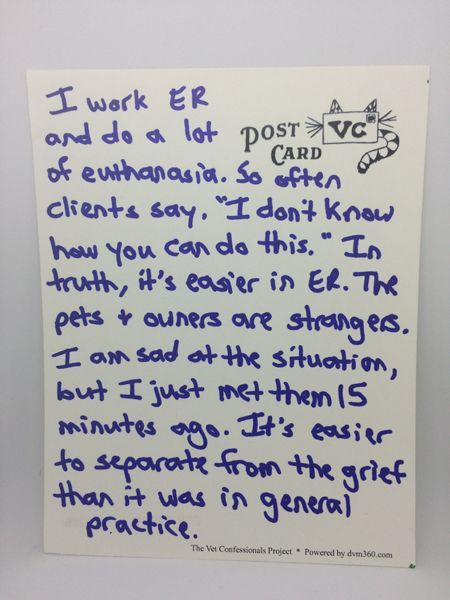 I work ER
and do a lot
of euthanasia. So often
clients say, "I don't know
how you can do this." In
truth, it's easier in ER. The
pets + owners are strangers.
I am sad at the situation,
but I just met them 15
minutes ago. It's easier
to separate from the grief
than it was in general
practice.
POST
CARD
VC
The Vet Confessionals Project * Powered by dvm360.com